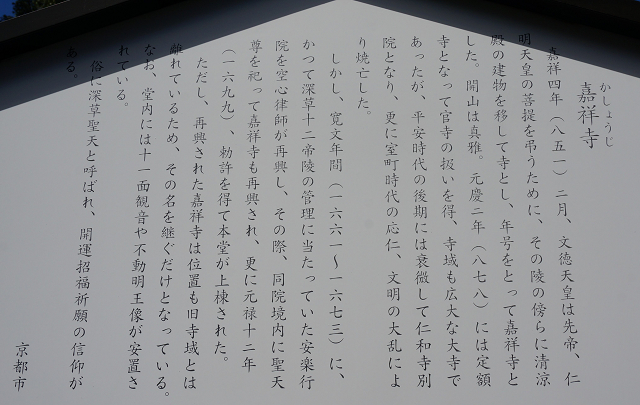 かしょうじ
嘉祥寺
嘉祥四年（八五一）二月、文徳天皇は先帝、仁
明天皇の菩提を弔うために、その陵の傍らに清涼
殿の建物を移して寺とし、年号をとって嘉祥寺と
した。開山は真雅。元慶二年（八七八）には定額
寺となって官寺の扱いを得、寺域も広大な大寺で
あったが、平安時代の後期には衰微して仁和寺別
院となり、更に室町時代の応仁、文明の大乱によ
り焼亡した。
しかし、寛文年間（一六六一〜一六七三）に、
かつて深草十二帝陵の管理に当たっていた安楽行
院を空心律師が再興し、その際、同院境内に聖天
尊を祀って嘉祥寺も再興され、更に元禄十二年
（一六九九）、勅許を得て本堂が上棟された。
ただし、再興された嘉祥寺は位置も旧寺域とは
離れているため、その名を継ぐだけとなっている。
なお、堂内には十一面観音や不動明王像が安置さ
れている。
俗に深草聖天と呼ばれ、開運招福祈願の信仰が
ある。
京都市